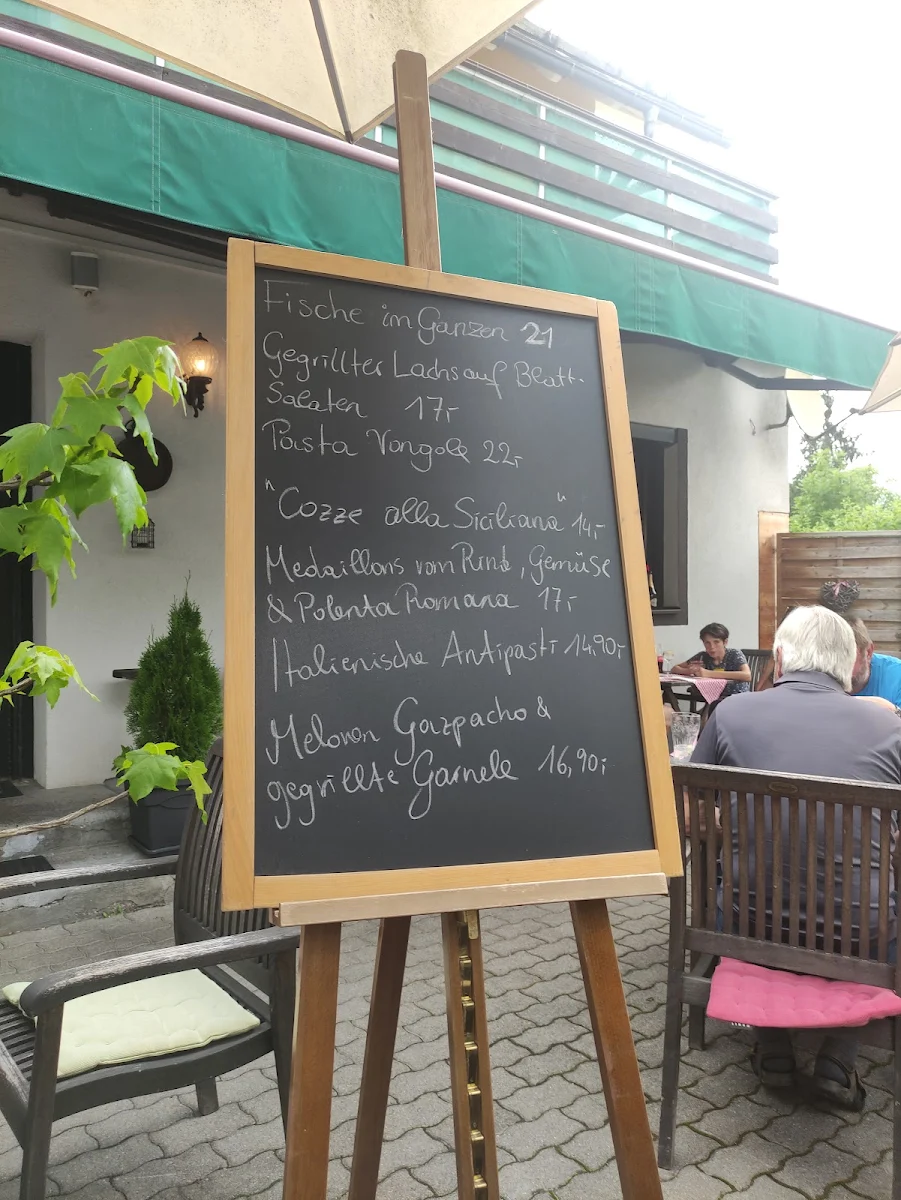 Fische im Ganzen 21
Gegrillter Lachs auf Blatt-
Salaten 17,-
Pasta Vongole 22,-
"Cozze alla Siciliana" 14,-
Medaillons vom Rind, Gemüse
& Polenta Romana 17,-
Italienische Antipasti 14,90,-
Melonen Gazpacho &
gegrillte Garnele 16,90,-